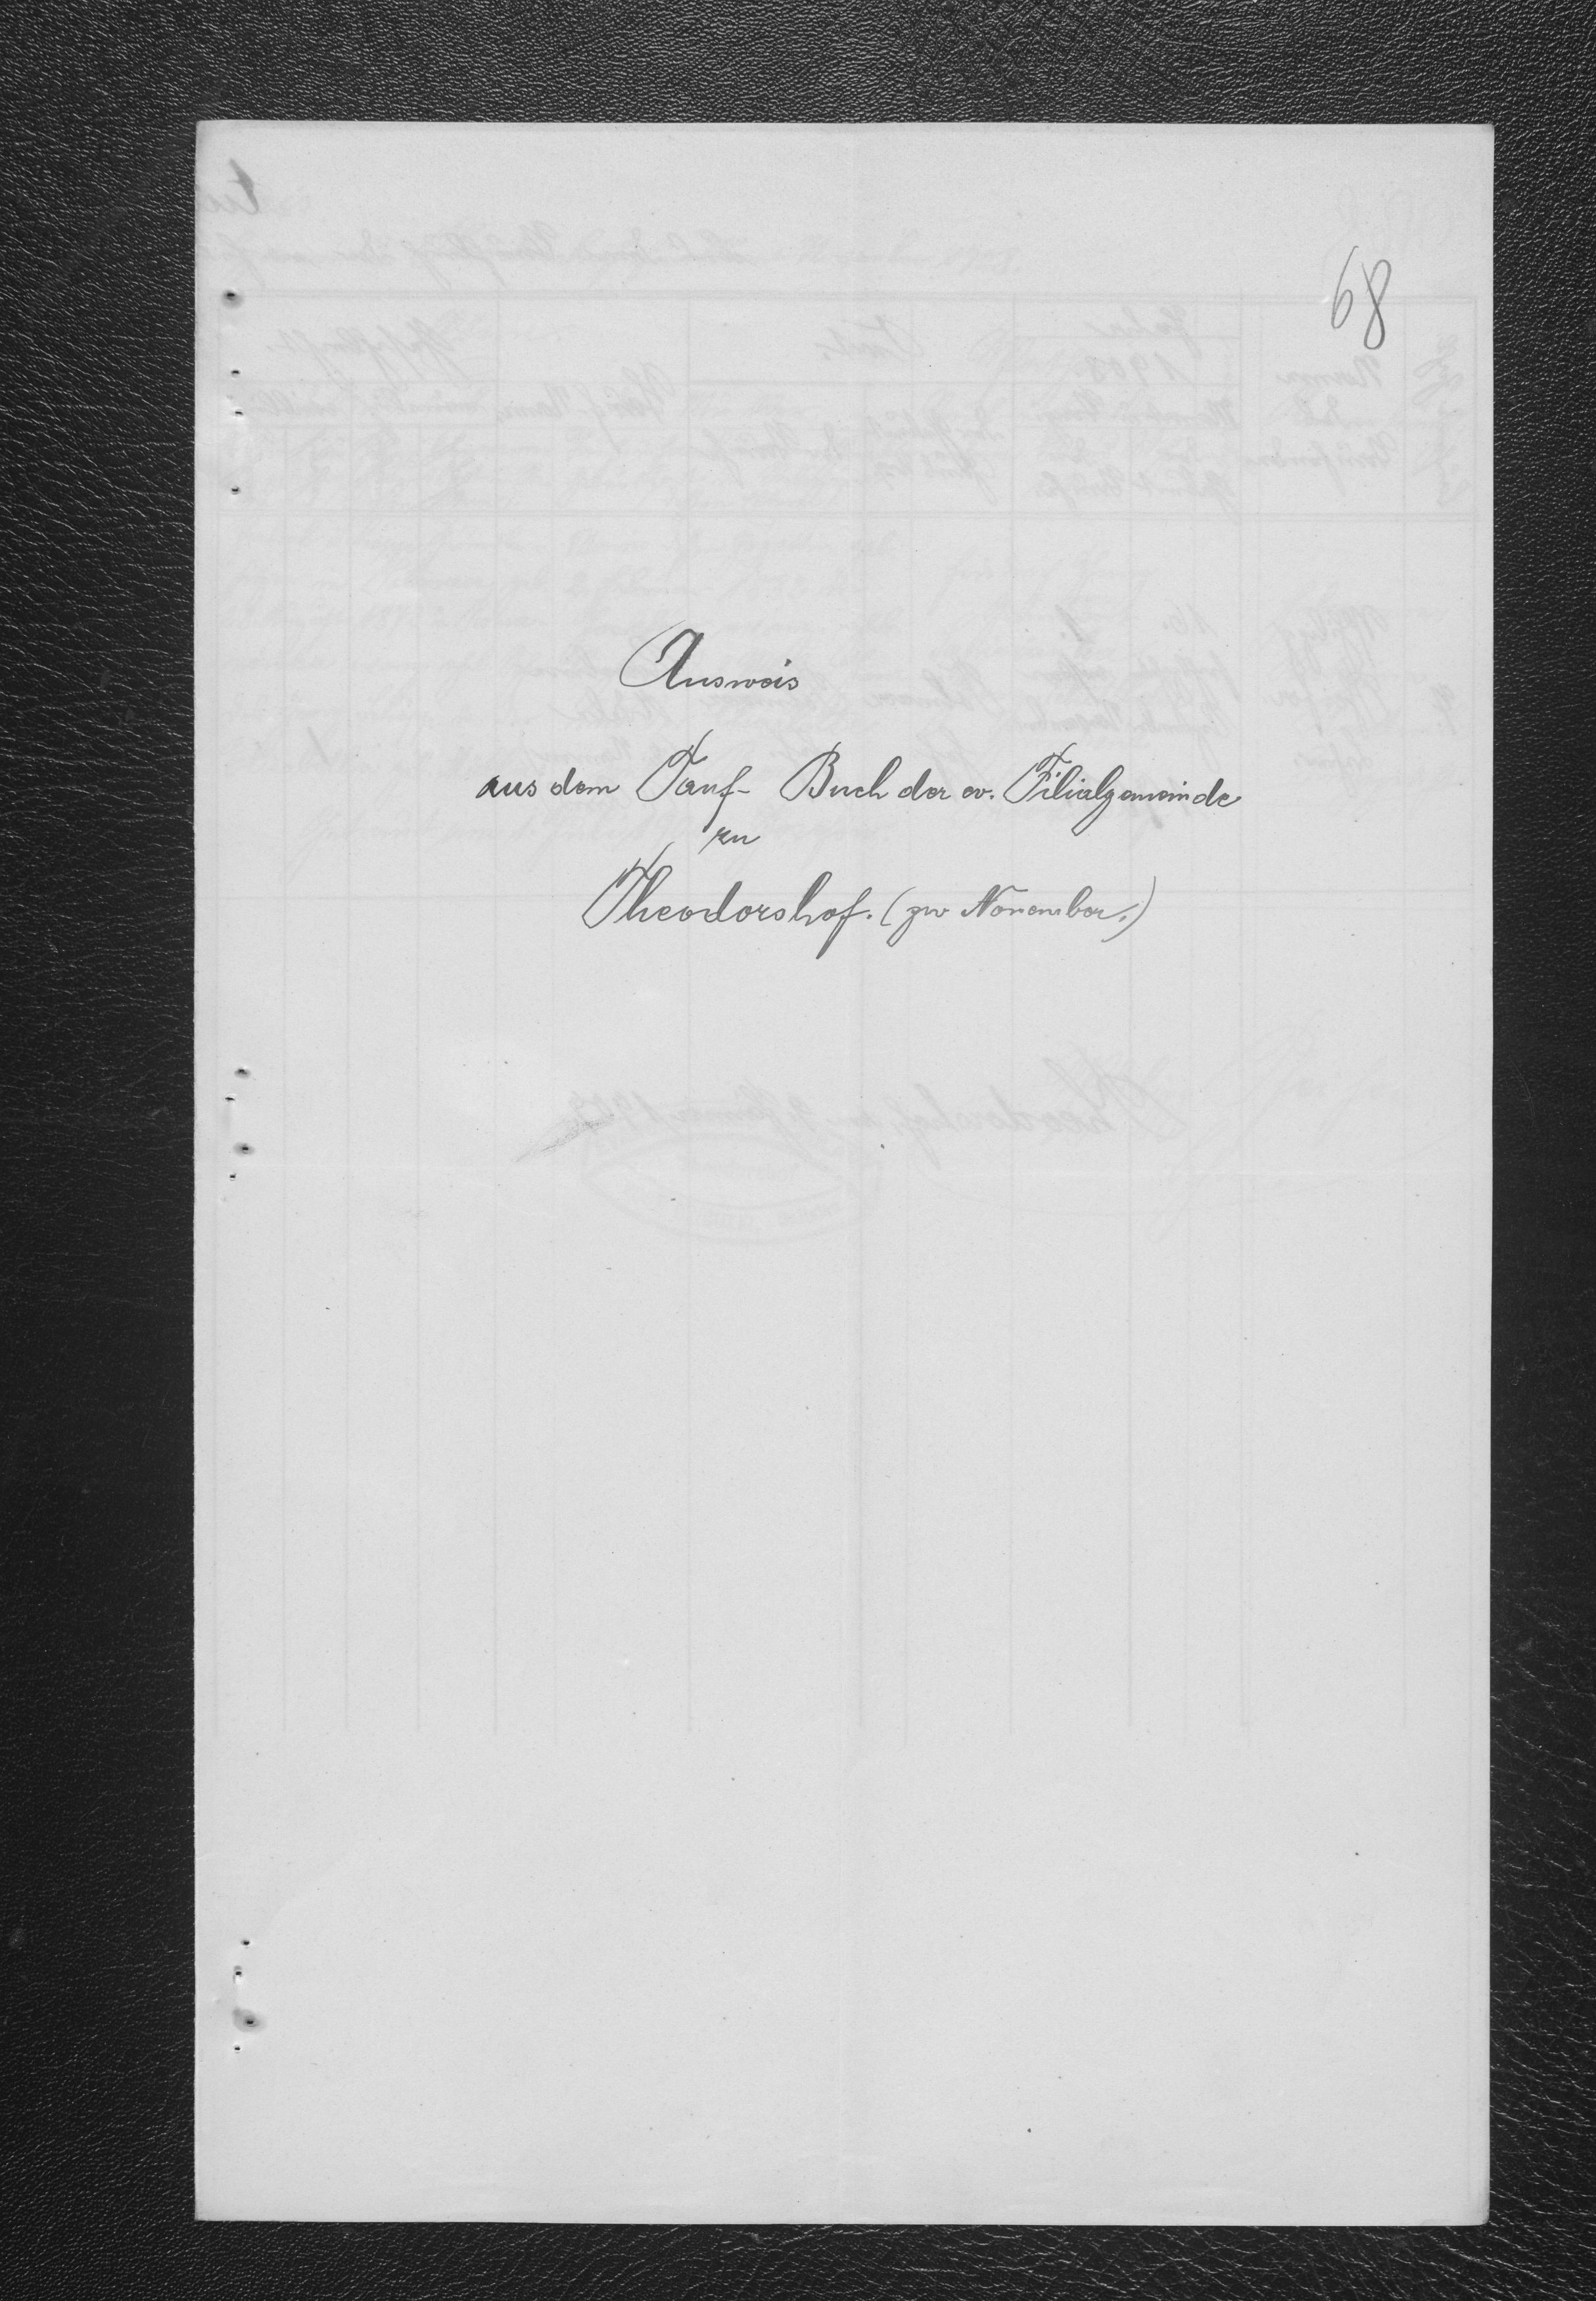 68
Ausweis
aus dem Tauf- Buch der ev. Filialgemeinde
zu
Theodorshof. (pro November.)